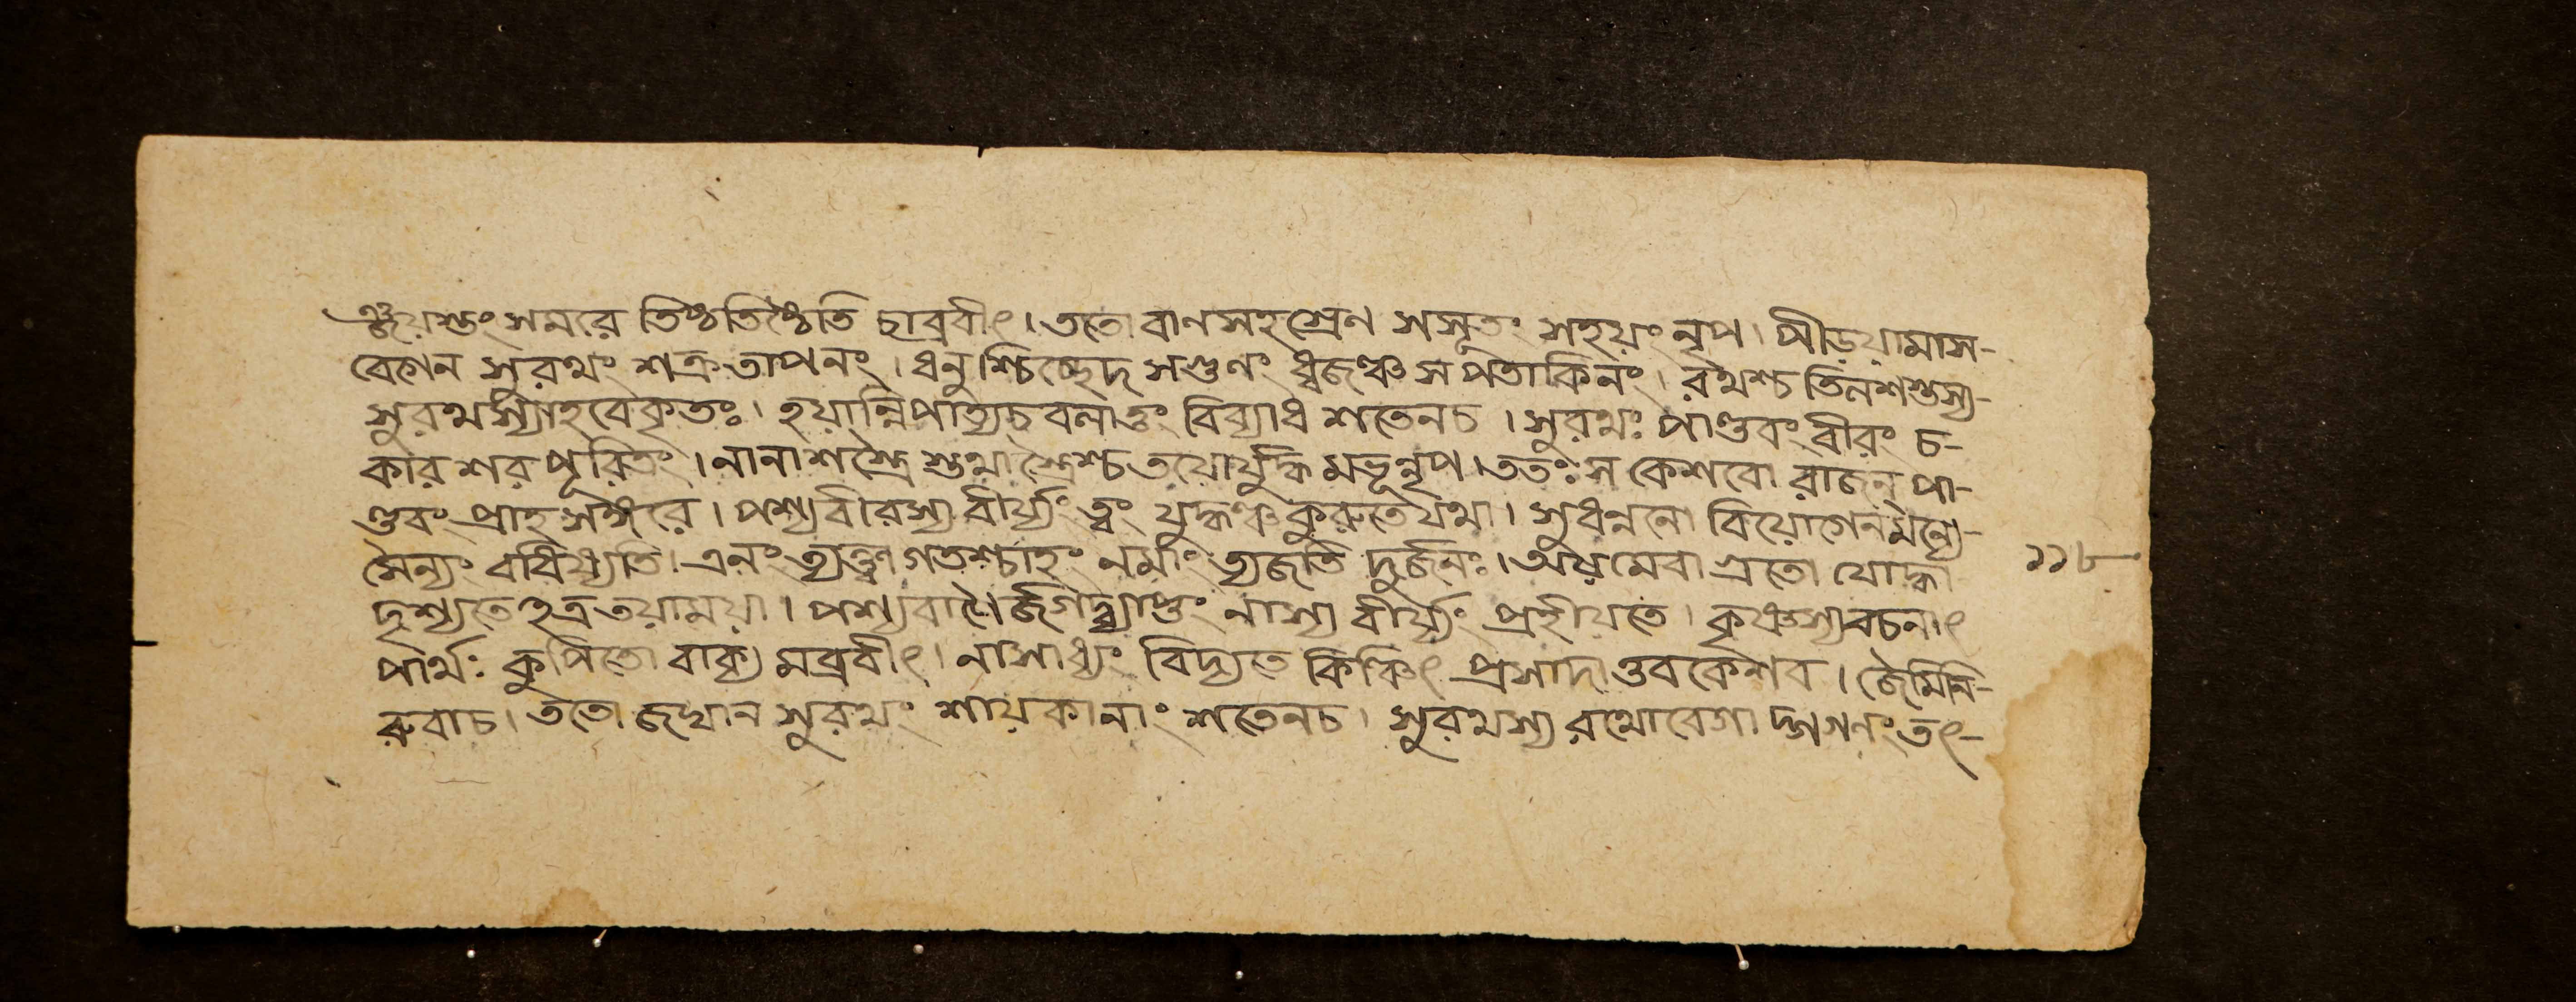 ঞ্জয়স্তং সমরে তিষ্ঠতিষ্ঠেতি চাব্রবীৎ। ততো বাণসহস্রেণ সসূতং সহয়ং নৃপ। পীড়য়ামাস-
বেগেন সুরথং শত্রুতাপনং। ধনুশ্চিচ্ছেদ সগুণং ধ্বজঞ্চ সপতাকিনং। রথশ্চ তিলশস্তস্য-
সুরথস্যাহবেকৃতঃ। হয়ান্নিপাত্যচ বলাত্তং বিব্যাধ শতেনচ। সুরথঃ পাণ্ডবং বীরং চ-
কার শরপূরিতং। নানাশস্ত্রৈ স্তথাস্ত্রৈশ্চ তয়োর্যুদ্ধ মভূন্নৃপ। ততঃ স কেশবো রাজন্ পা-
ণ্ডবং প্রাহ সঙ্গরে। পশ্যবীরস্য বীর্য্যং ত্বং যুদ্ধঞ্চ কুরুতেযথা। সুধন্বনো বিয়োগেনমন্যে-
সৈন্যং বধিষ্যতি। এনং ত্যক্ত্বা গতশ্চাহং নমাং ত্যজতি দুর্জনঃ। অয়মেবাগ্রতো যোদ্ধা
দৃশ্যতেঽত্র ত্বয়াময়া। পশ্যবাণৈর্জগদ্ব্যাপ্তং নাস্য বীর্য্যং প্রহীয়তে। কৃষ্ণস্যবচনাৎ
পার্থঃ কুপিতো বাক্য মব্রবীৎ। নাসাধ্যং বিদ্যতে কিঞ্চিৎ প্রসাদাত্তবকেশব। জৈমিনি-
রুবাচ। ততো জঘান সুরথং শায়কানাং শতেনচ। সুরথস্য রথোবেগা দ্গগনং তৎ-
১১৮